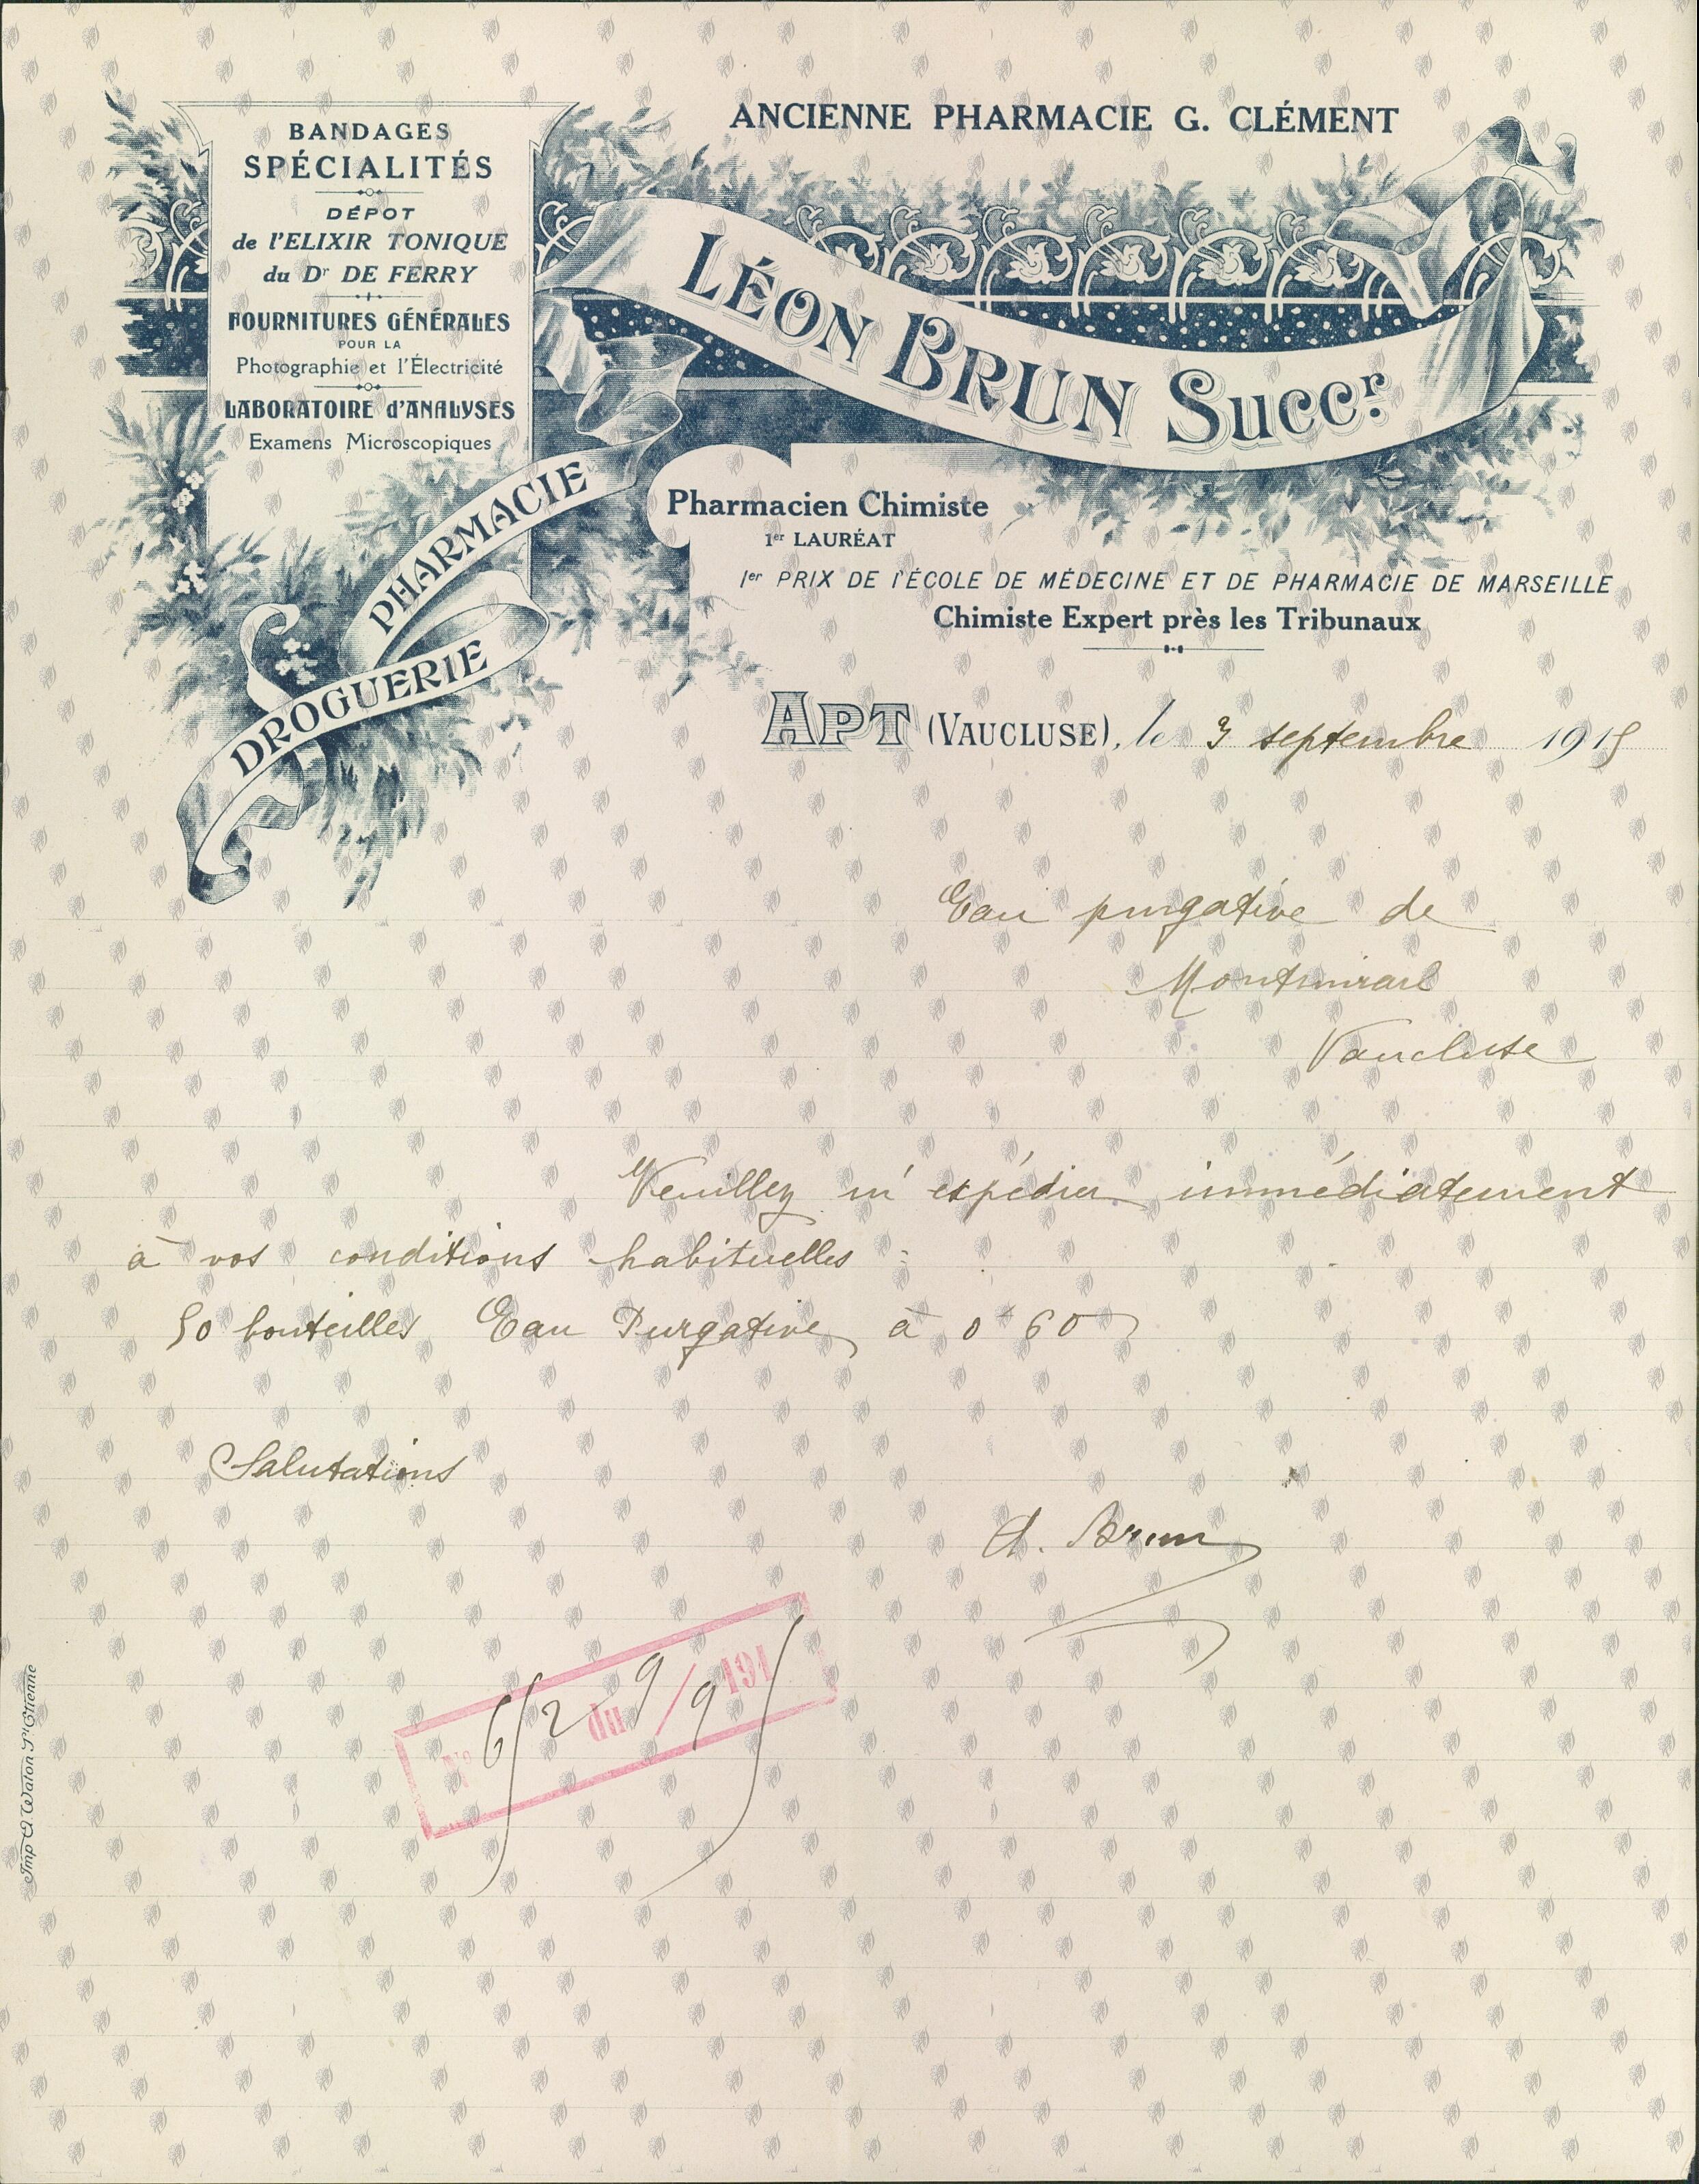 BANDAGES
SPÉCIALITÉS
DÉPOT
de l'ELIXIR TONIQUE
du Dr DE FERRY
FOURNITURES GÉNÉRALES
POUR LA
Photographie et l'Électricité
LABORATOIRE d'ANALYSES
Examens Microscopiques
PHARMACIE
DROGUERIE
ANCIENNE PHARMACIE G. CLÉMENT
LÉON BRUN Succr.
Pharmacien Chimiste
1er LAURÉAT
1er PRIX DE l'ÉCOLE DE MÉDECINE ET DE PHARMACIE DE MARSEILLE
Chimiste Expert près les Tribunaux
APT (VAUCLUSE), le 3 septembre 1915
Eau purgative de
Montmirail
Vaucluse
Veuillez m'expédier immédiatement
à vos conditions habituelles :
50 bouteilles Eau Purgative à 0f 60
Salutations
Brun
No 6/2 du 9/9 1915
Imp A. Waton St Etienne